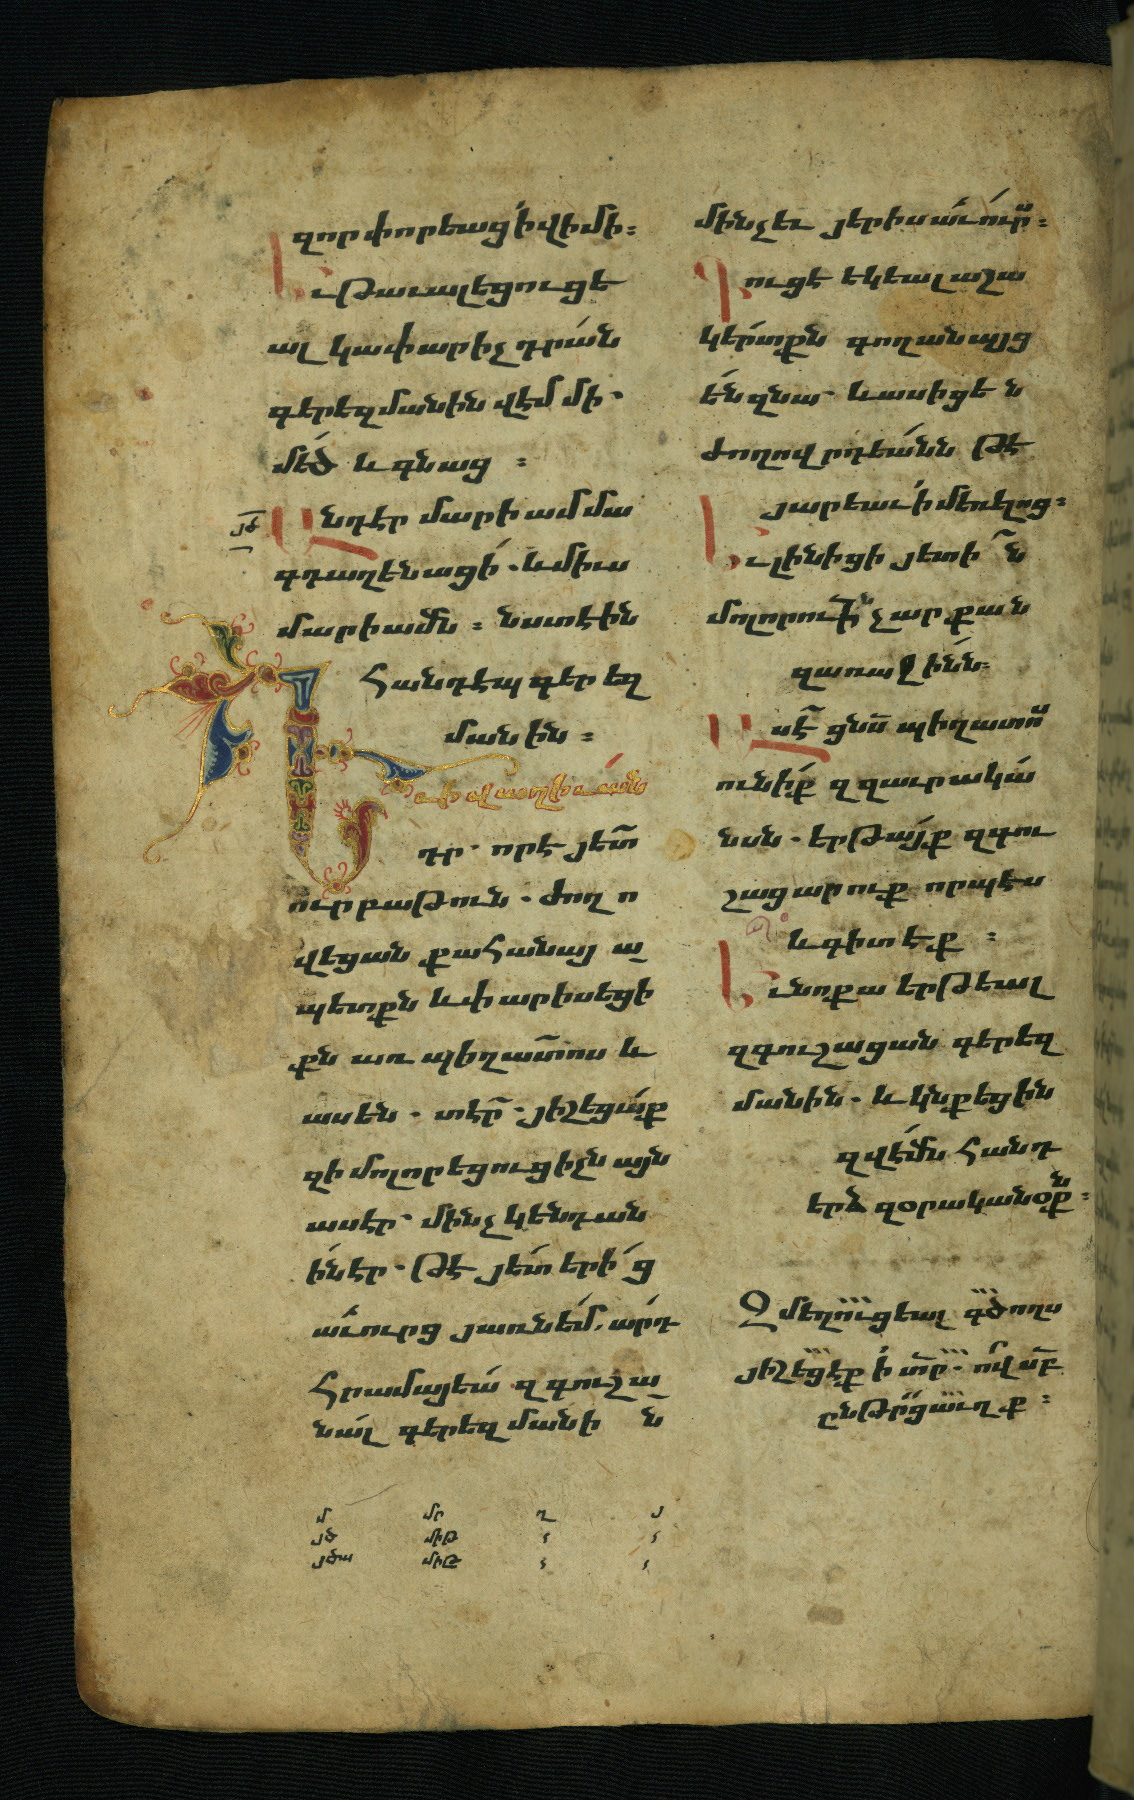 զոր փորեաց ի վիմի ։
Եւ թաւալեցուցե
ալ կափարիչ դրան
գերեզմանին վէմ մի ·
մեծ և գնաց ։
յծ
Անդէր մարիամ մա
գդաղենացի · և միւս
մարիամն ։ նստէին
հանդէպ գերեզ
մանին ։
Ի վաղիւան
դր · որ է յետ
ուրբաթուն · ժող ո
վեցան քահանայ ա
պետքն և փարիսեցի
քն առ պիղատոս և
ասեն · տէր · յիշեցաք
զի մոլորեցուցիչն այն
ասէր · մինչ կենդան
ի էր · թէ յետ երից
աւուրց յառնեմ · արդ
հրամայեա զգուշա
նալ գերեզմանի ն
մինչեւ յերիս աւուրս ։
Գուցէ եկեալ աշա
կերտքն գողանայց
են զնա · և ասիցե ն
ժողովրդեանն թէ
յարեաւ ի մեռելոց ։
Եւ լինիցի յետին
մոլորութիւն չար քան
զառաջինն ։
Ասէ ցնոսա պիղատոս
ունիք զզաւրակա
նսն · երթայք զգու
շացարուք որպէս
և գիտէք ։
Եւ նոքա երթեալ
զգուշացան գերեզ
մանին · և կնքեցին
զվէմն հանդ
երձ զօրականօքն ։
Զմեղուցեալ գծողս
յիշեցէք ի տր · ով սբ
ընթրցաւղ ք ։
մ մր ղ յ
յծ միթ
յծա միԸ